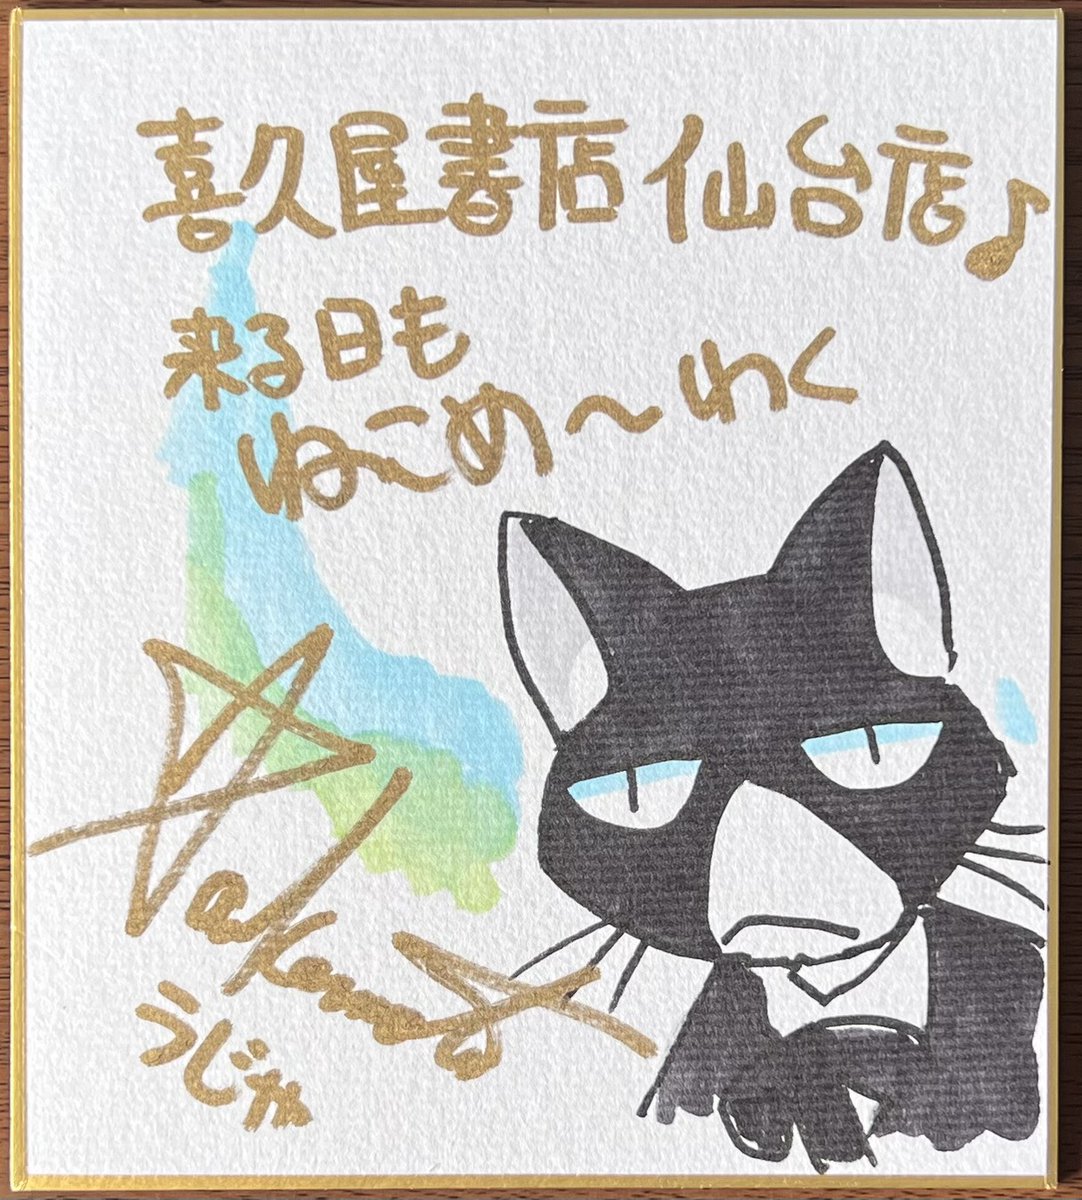 喜久屋書店 仙台店♪
来る日も
ねこめ～わく
Takemoto
うじゃ